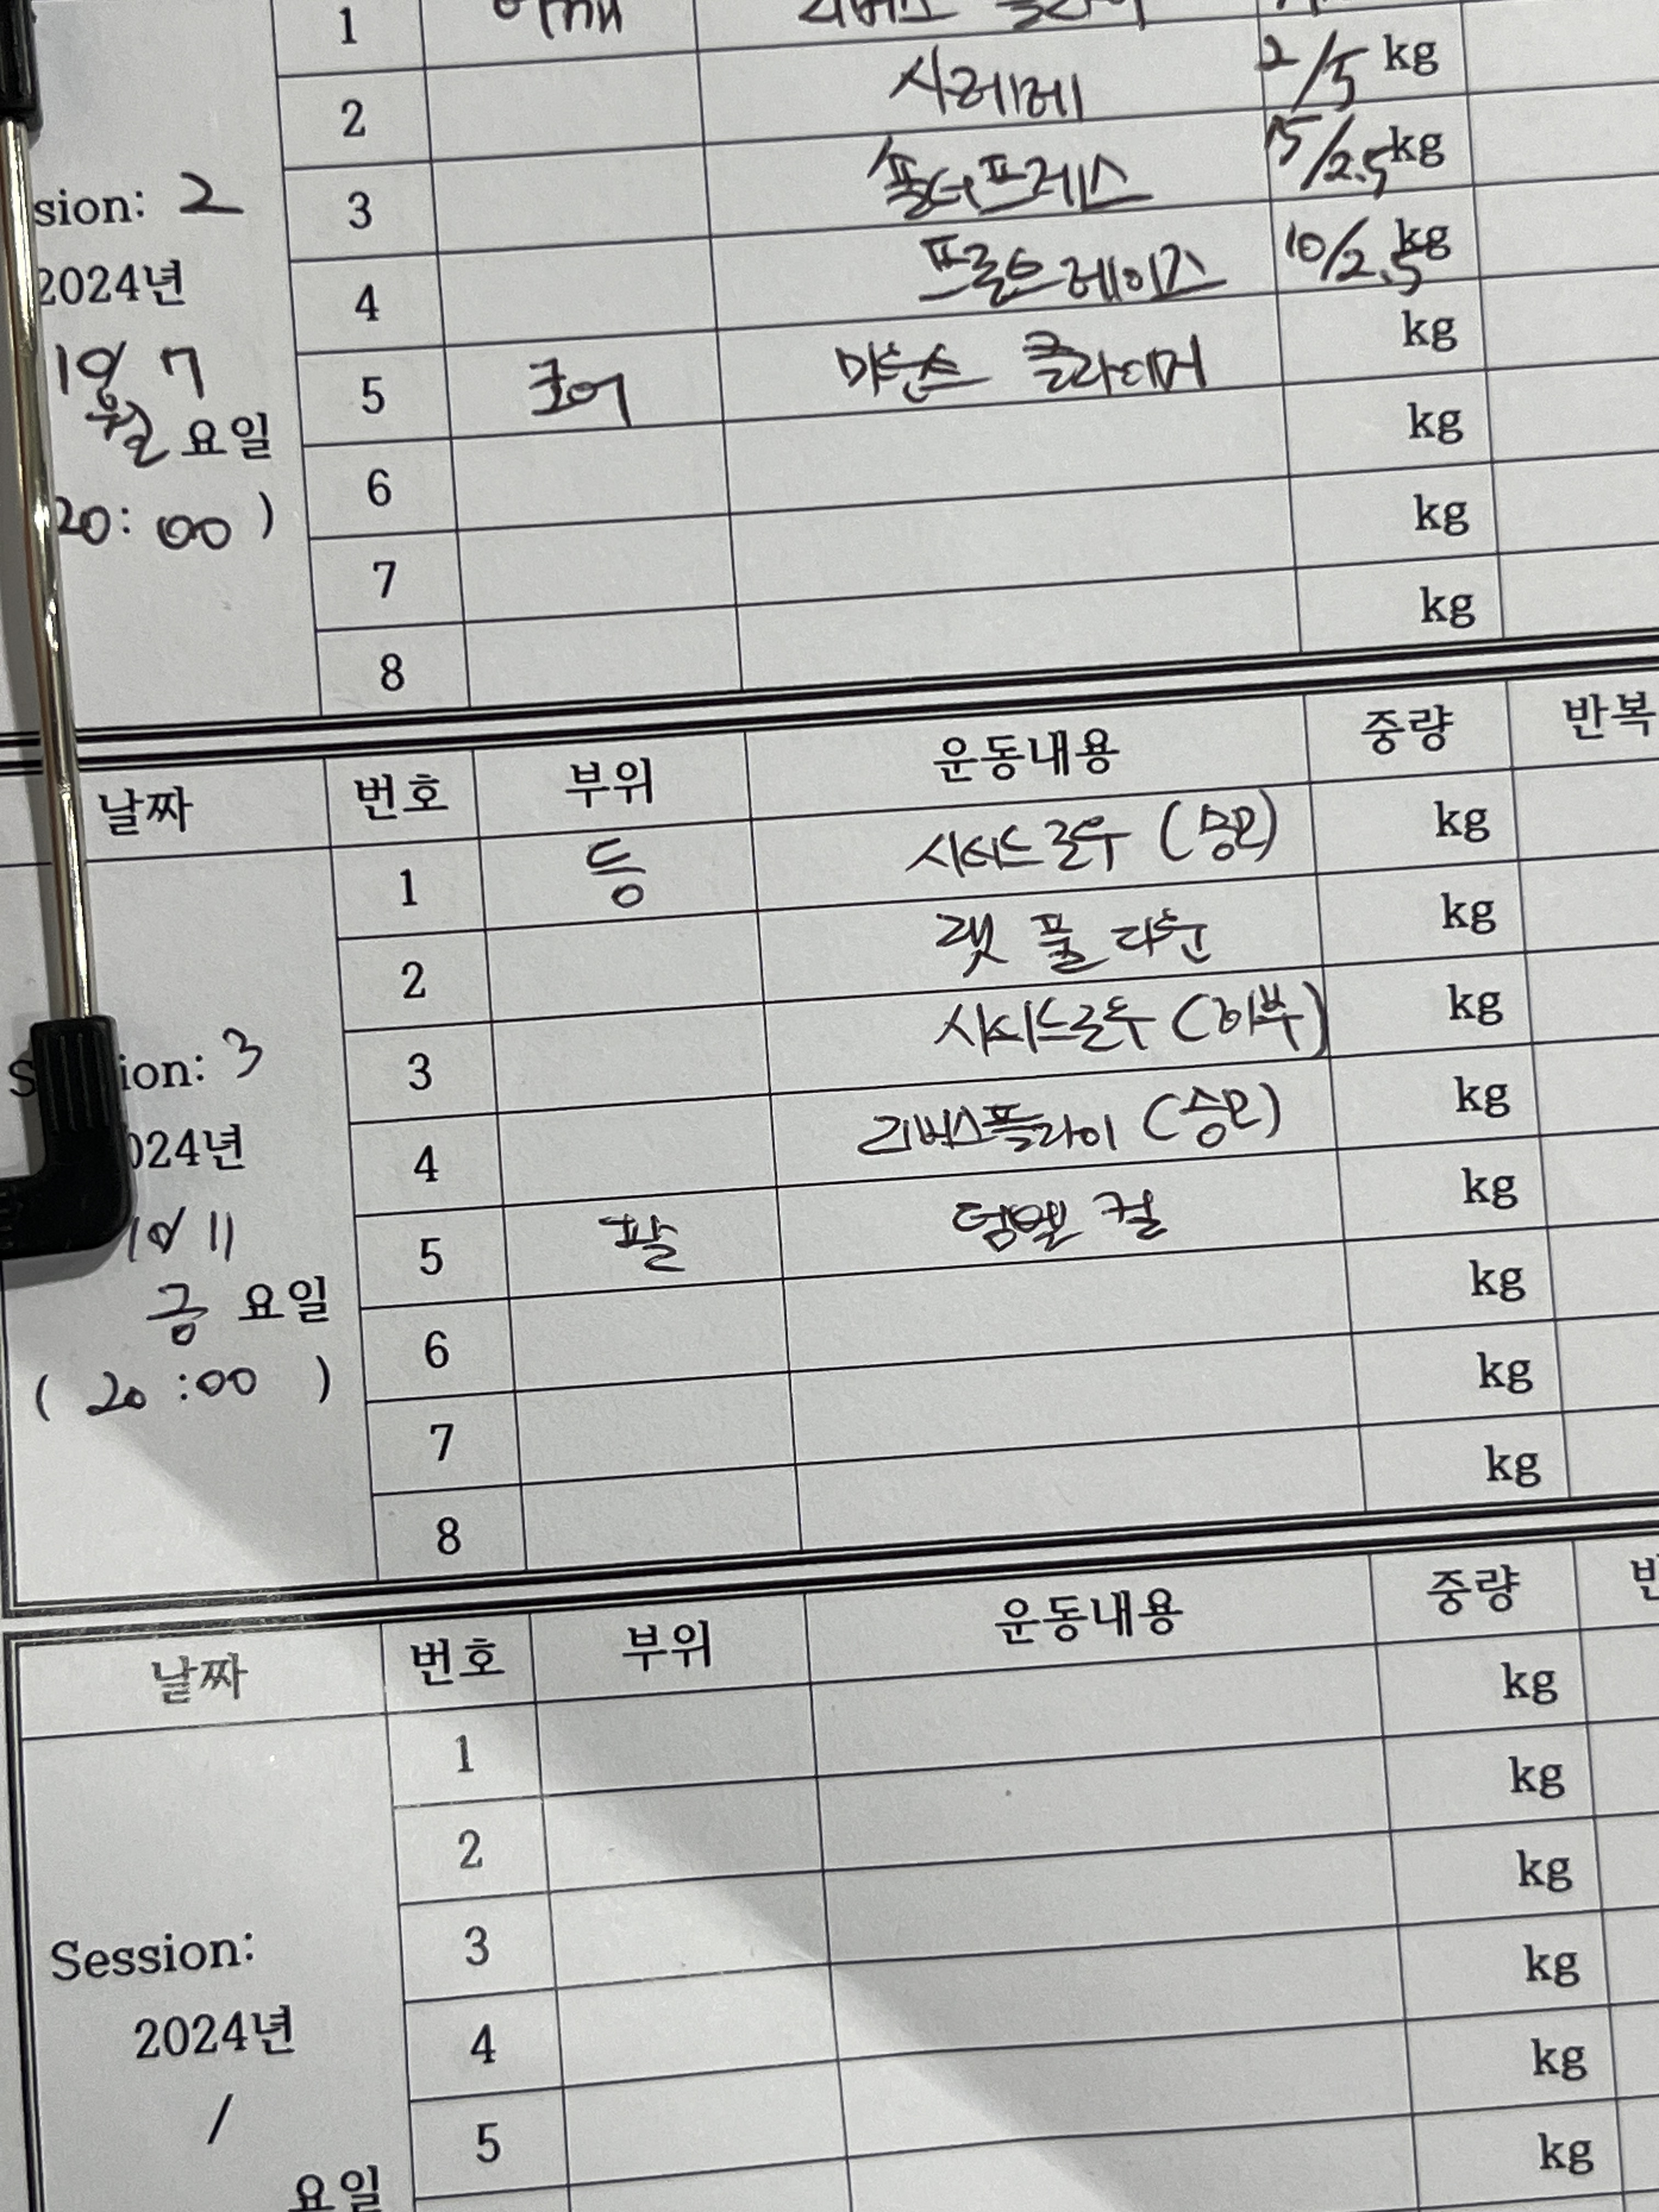 1 어깨 리버스 플라이
2 사레레 2/5 kg
3 숄더프레스 15/2.5 kg
sion: 2
4 프론트레이즈 10/2.5 kg
2024년
5 코어 마운틴 클라이머 kg
10/ 7
월 요일
6 kg
20: 00 )
7 kg
8 kg
날짜 번호 부위 운동내용 중량 반복
1 등 시티드로우 (중립) kg
2 랫 풀 다운 kg
3 시티드로우 (하부) kg
Session: 3
4 리버스플라이 (승모) kg
2024년
5 팔 덤벨 컬 kg
10/ 11
금 요일
6 kg
( 20 :00 )
7 kg
8 kg
날짜 번호 부위 운동내용 중량
1 kg
2 kg
3 kg
Session:
4 kg
2024년
5 kg
/
kg
요일